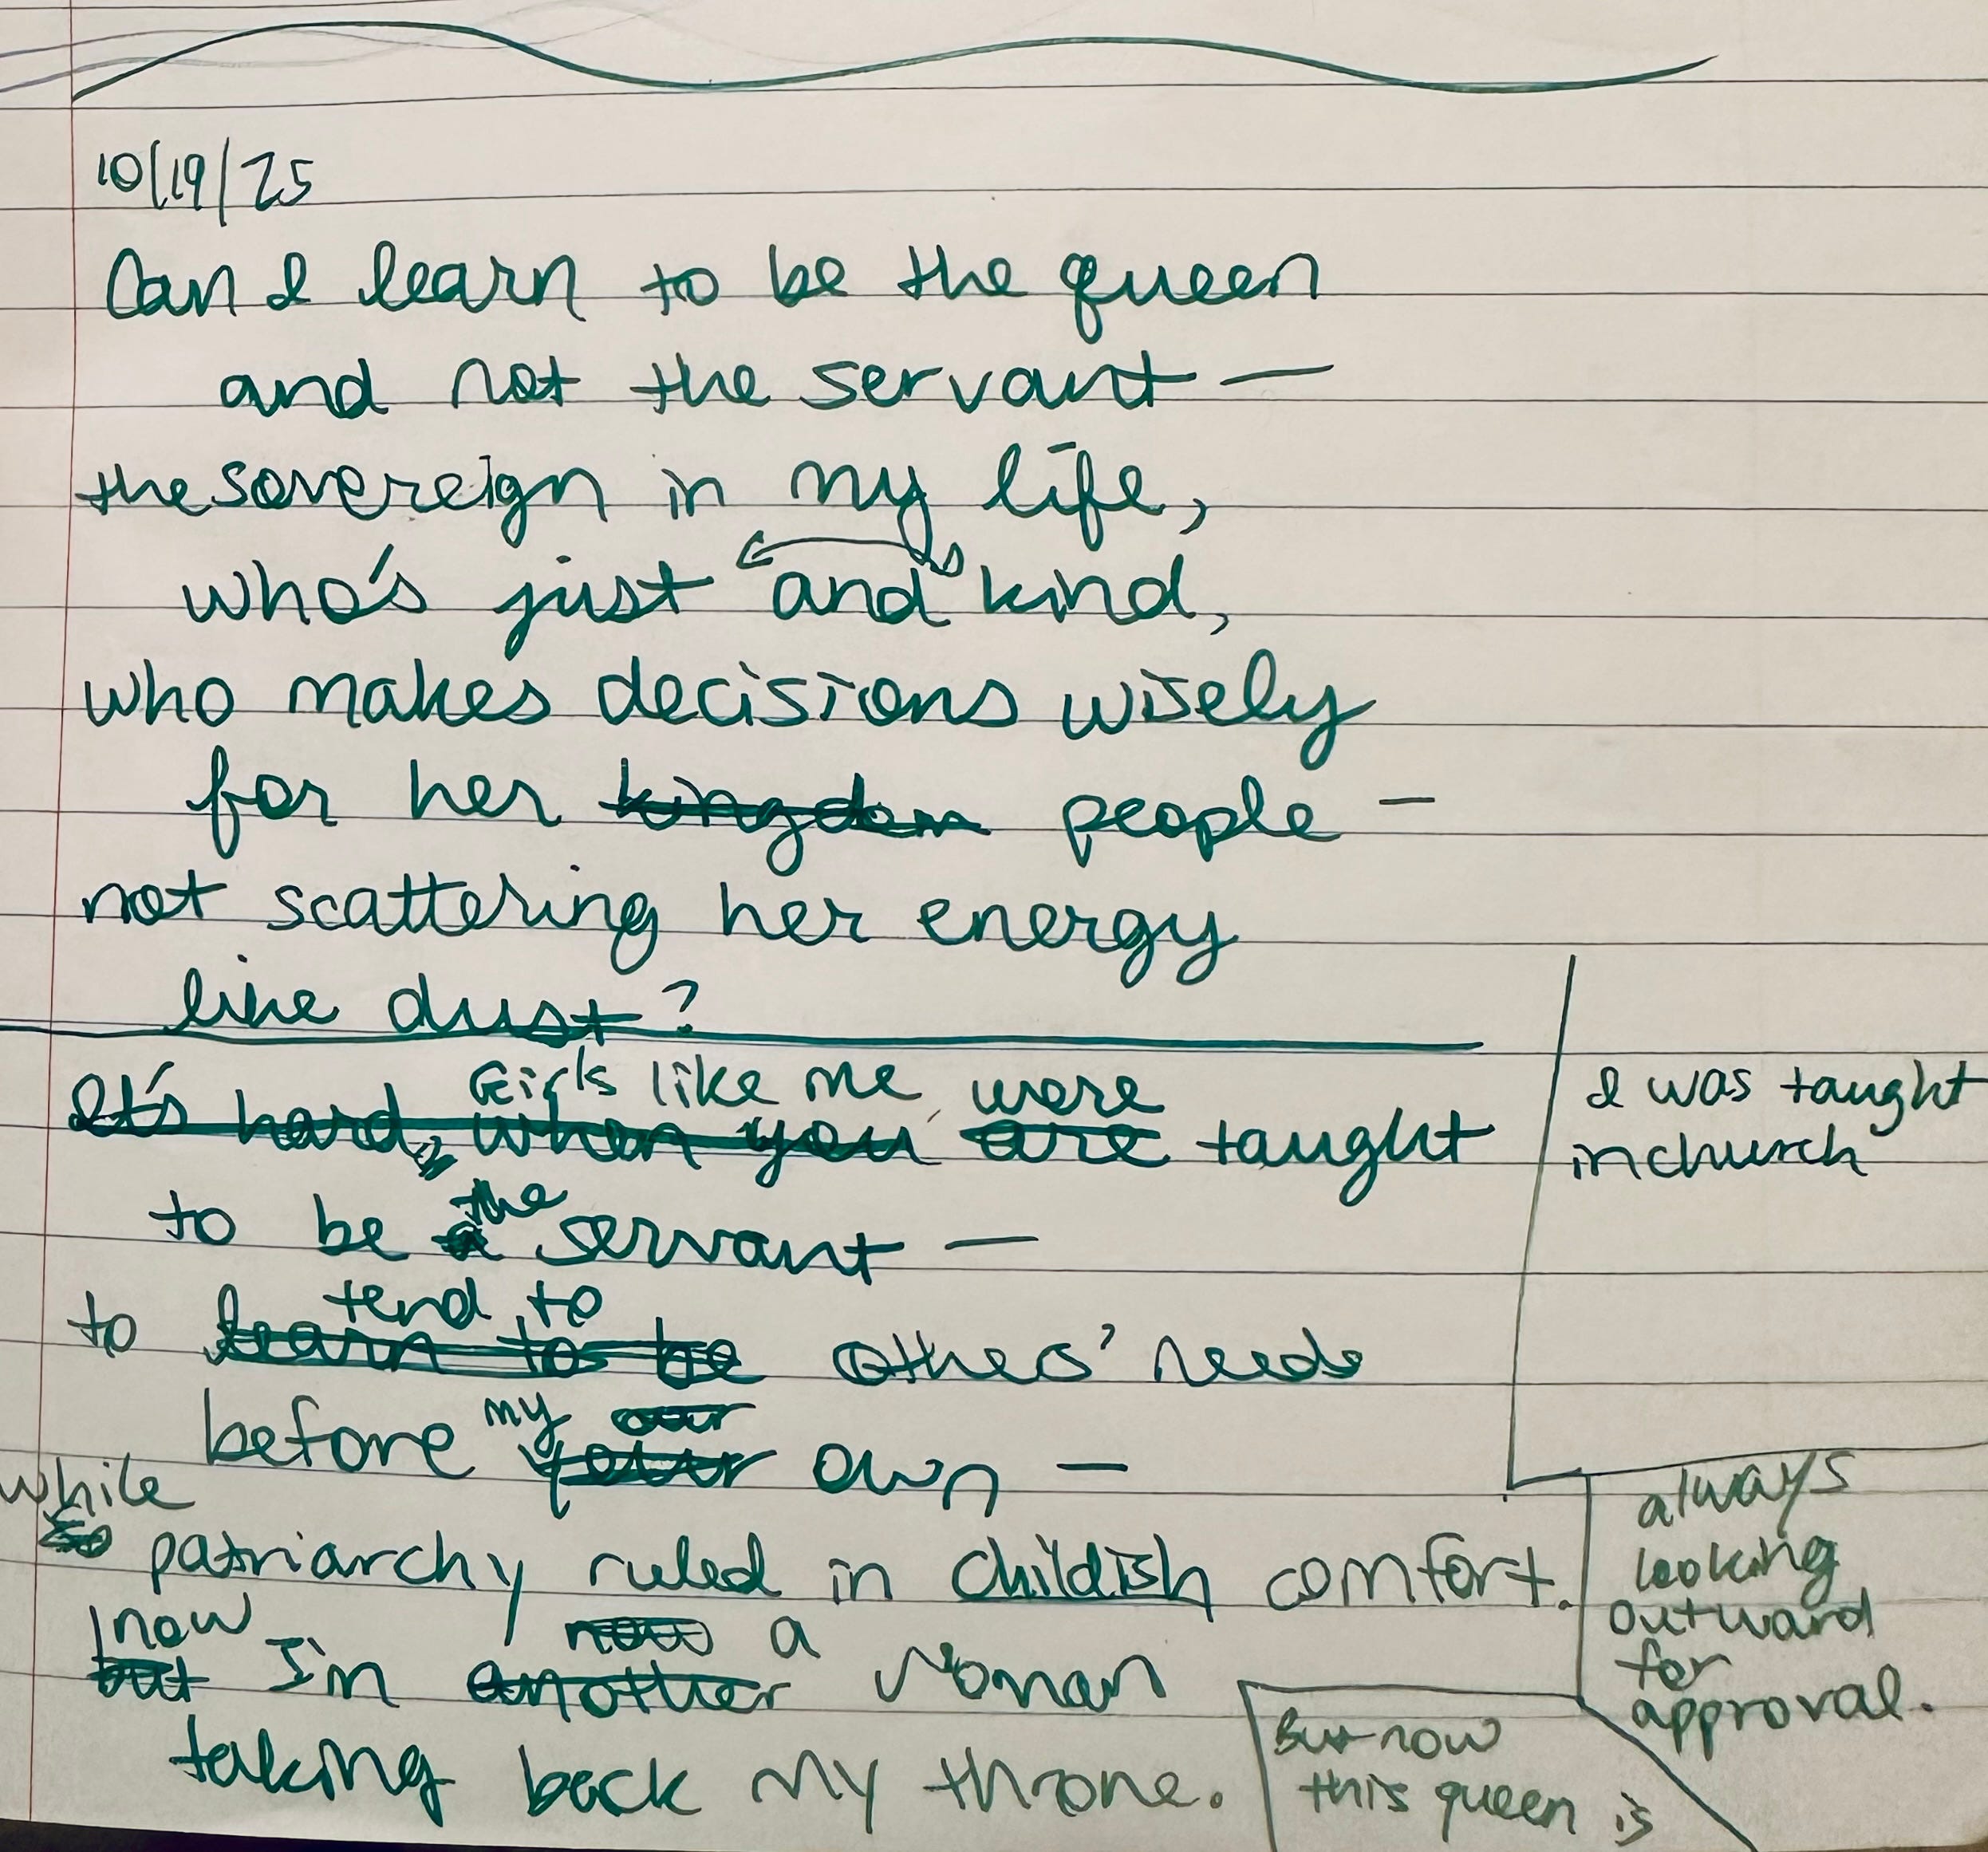 10/19/25
Can I learn to be the queen
and not the servant —
the sovereign in my life,
who's just and kind,
who makes decisions wisely
for her kingdom people —
not scattering her energy
like dust?
Girls like me were
It's hard, when you are taught
the
to be a servant —
tend to
to learn to be others' needs
my our
before your own —
while
so patriarchy ruled in childish comfort.
now now a
but I'm another woman
taking back my throne.
I was taught
in church
always
looking
outward
for
approval.
But now
this queen is